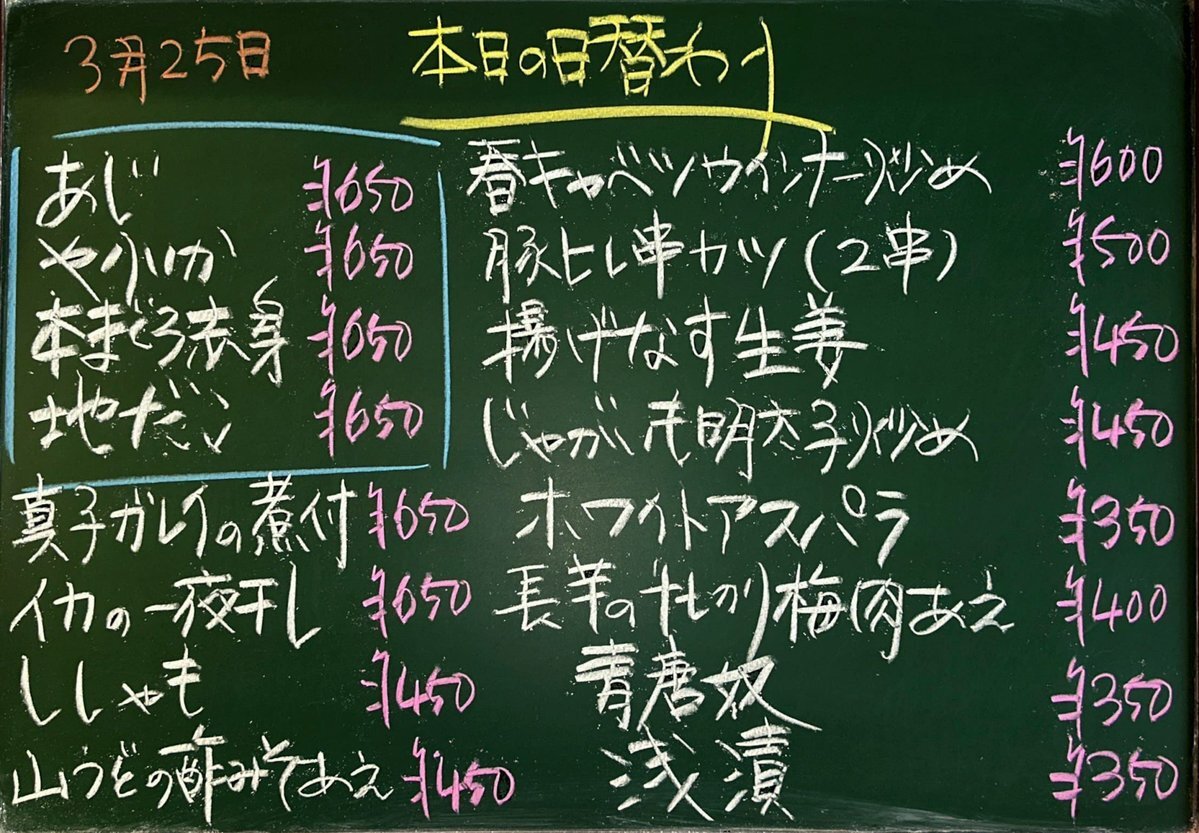 3月25日
本日の日替わり
あじ ¥650
やりいか ¥650
本まぐろ赤身 ¥650
地だい ¥650
真子ガレイの煮付 ¥650
イカの一夜干し ¥650
ししゃも ¥450
山うどの酢みそあえ ¥450
春キャベツウインナー炒め ¥600
豚ヒレ串カツ(2串) ¥500
揚げなす生姜 ¥450
じゃが芋明太子炒め ¥450
ホワイトアスパラ ¥350
長芋の千切り梅肉あえ ¥400
青唐奴 ¥350
浅漬 ¥350